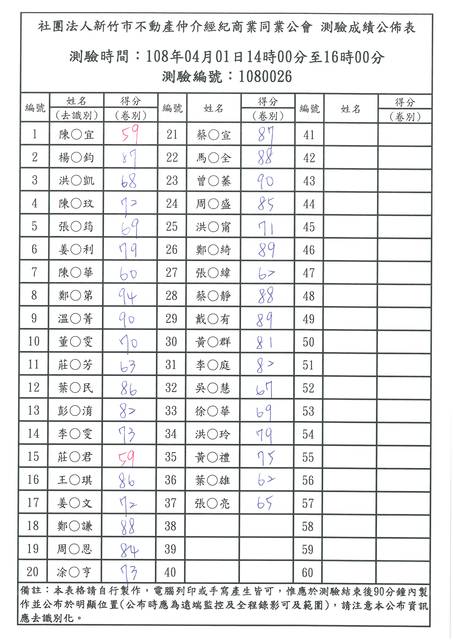 社團法人新竹市不動產仲介經紀商業同業公會 測驗成績公佈表
測驗時間：108年04月01日14時00分至16時00分
測驗編號：1080026
編號 姓名(去識別) 得分(卷別) 編號 姓名 得分(卷別) 編號 姓名 得分(卷別)
1 陳○宜 59 21 蔡○宣 87 41
2 楊○鈞 87 22 馬○全 88 42
3 洪○凱 68 23 曾○蓁 90 43
4 陳○玟 72 24 周○盛 85 44
5 張○筠 69 25 洪○甯 71 45
6 姜○利 79 26 鄭○綺 89 46
7 陳○華 60 27 張○緯 62 47
8 鄭○第 94 28 蔡○靜 88 48
9 溫○菁 90 29 戴○有 89 49
10 董○雯 70 30 黃○群 81 50
11 莊○芳 63 31 李○庭 82 51
12 葉○民 86 32 吳○慧 67 52
13 彭○淯 82 33 徐○華 69 53
14 李○雯 73 34 洪○玲 79 54
15 莊○君 59 35 黃○禮 75 55
16 王○琪 86 36 葉○雄 62 56
17 姜○文 72 37 張○亮 65 57
18 鄭○謙 88 38 58
19 周○恩 84 39 59
20 凃○亨 73 40 60
備註：本表格請自行製作，電腦列印或手寫產生皆可，惟應於測驗結束後90分鐘內製
作並公布於明顯位置(公布時應為遠端監控及全程錄影可及範圍)，請注意本公布資訊
應去識別化。